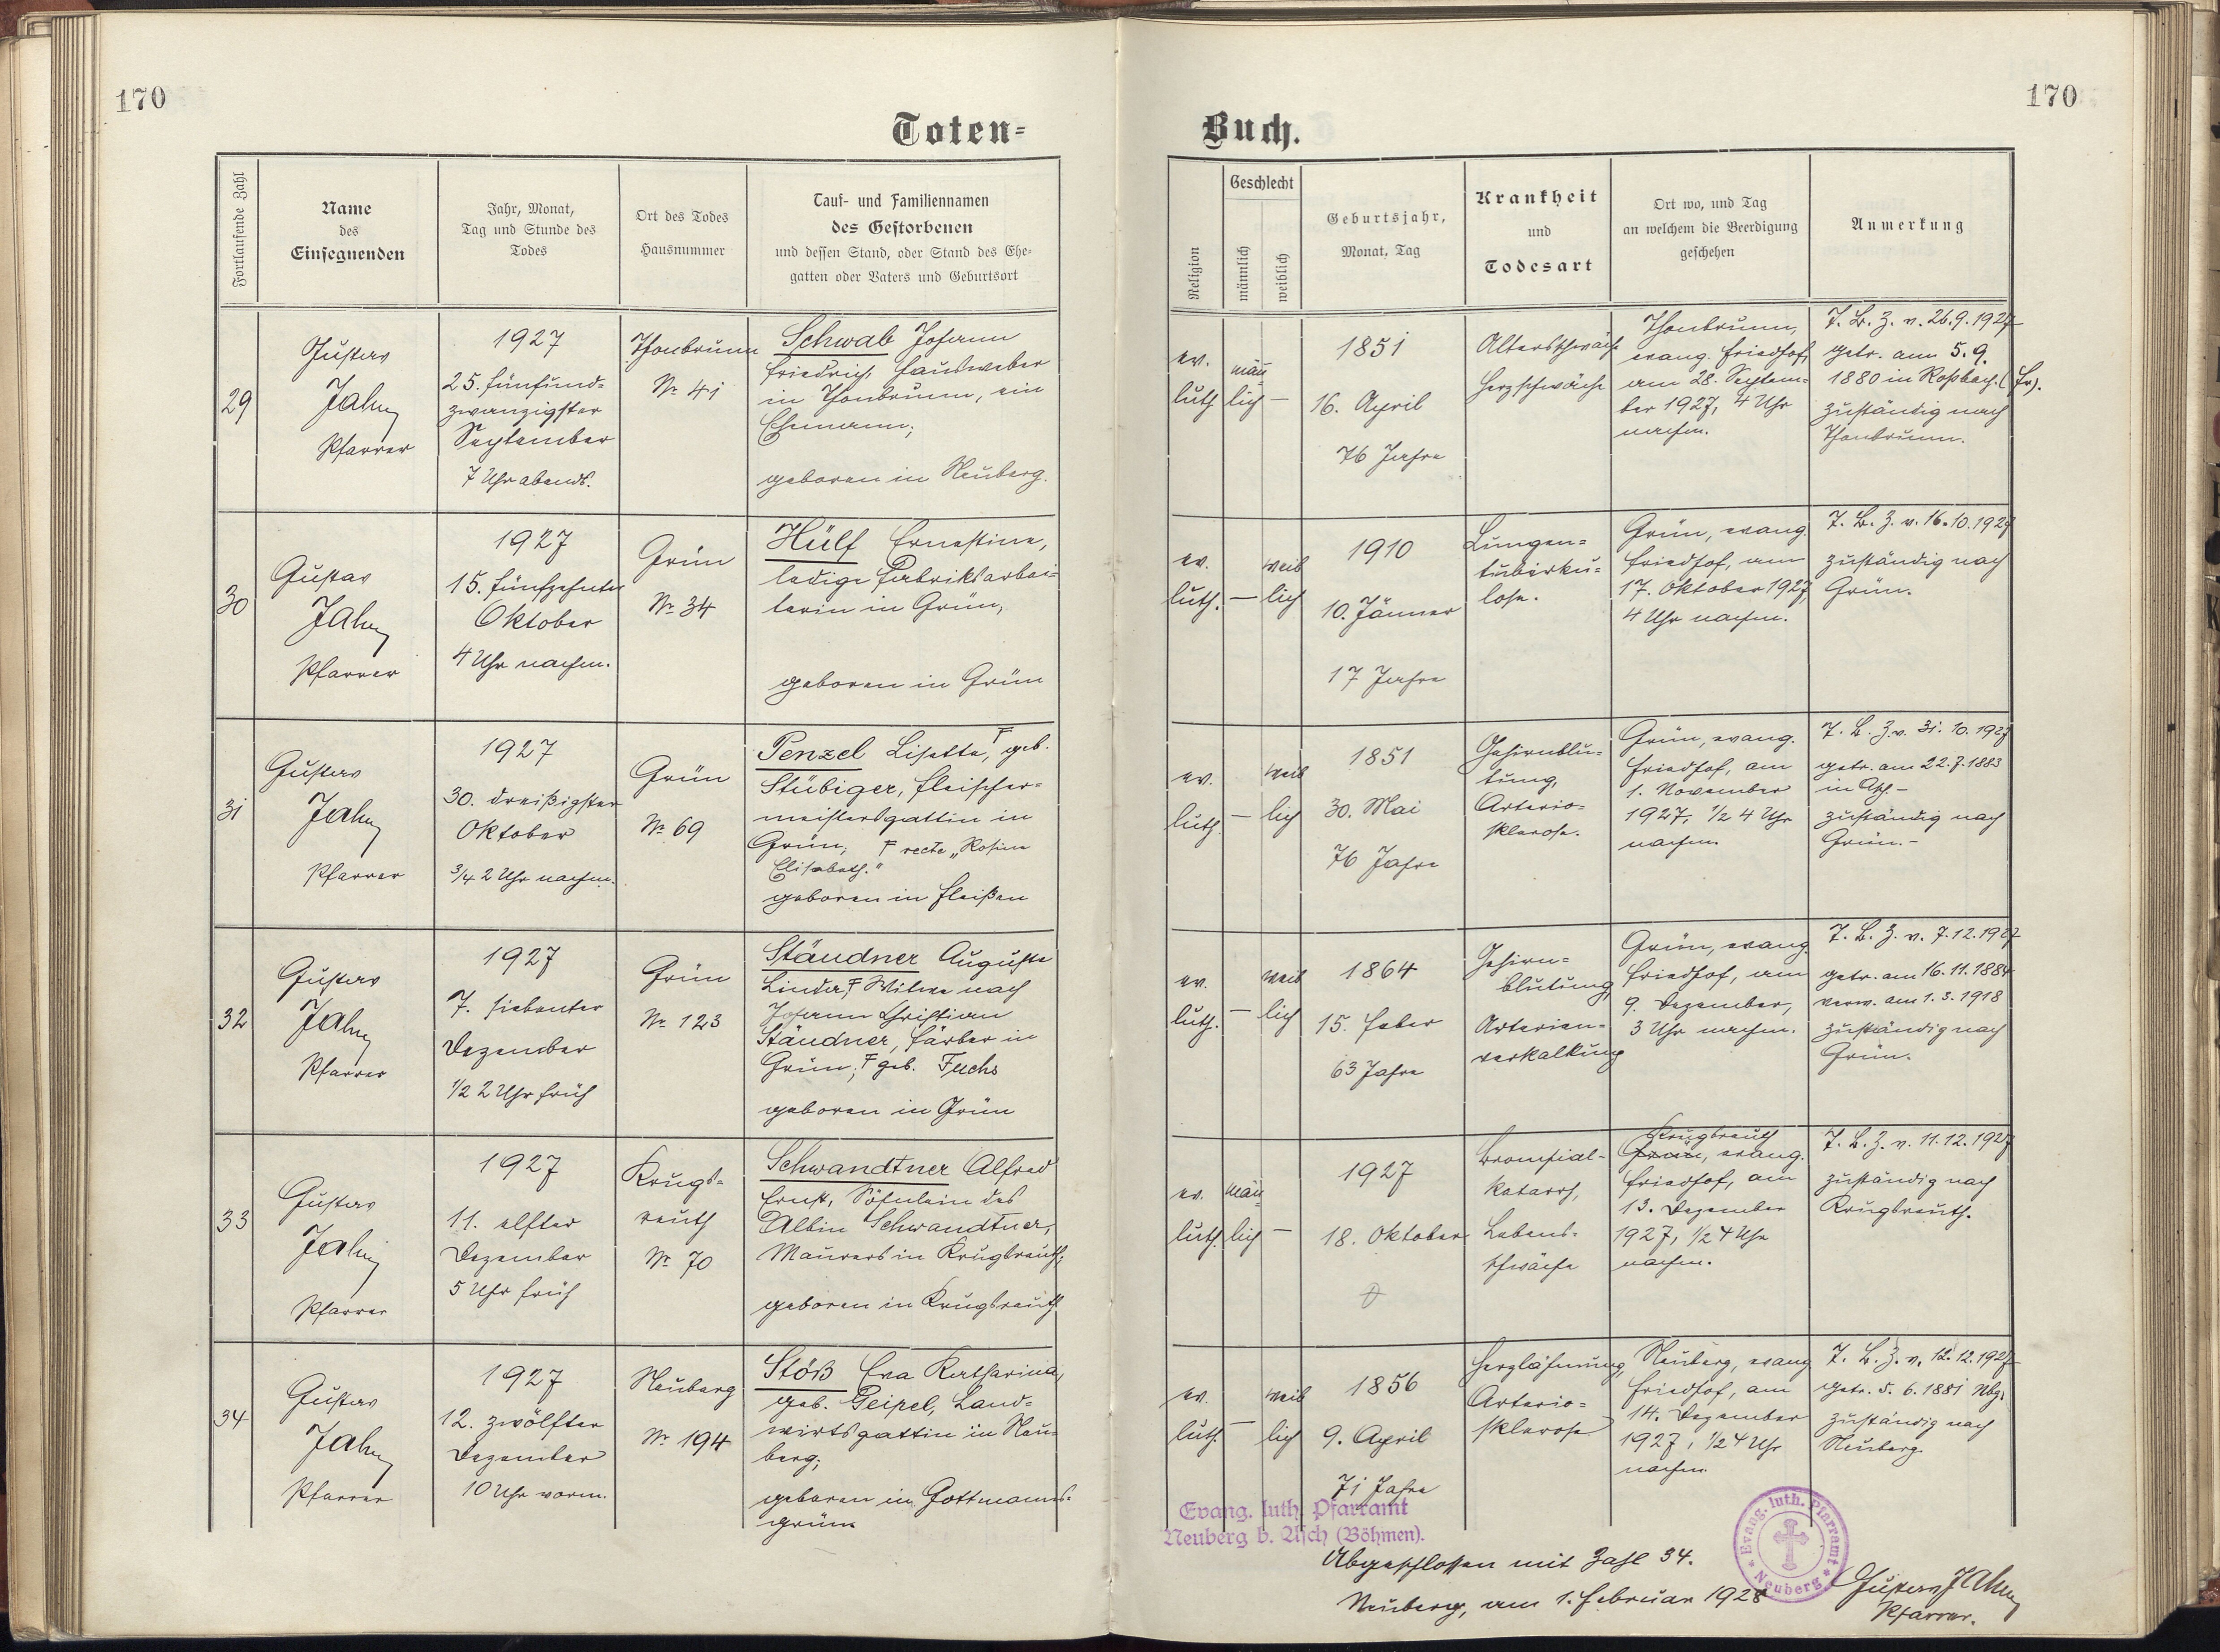 170
170
Toten=
Buch.
Fortlaufende Zahl
Name
des
Einsegnenden
Jahr, Monat,
Tag und Stunde des
Todes
Ort des Todes
Hausnummer
Tauf- und Familiennamen
des Gestorbenen
und dessen Stand, oder Stand des Ehe-
gatten oder Vaters und Geburtsort
Religion
Geschlecht
männlich
weiblich
Geburtsjahr,
Monat, Tag
Krankheit
und
Todesart
Ort wo, und Tag
an welchem die Beerdigung
geschehen
Anmerkung
29
Gustav
Jahn
Pfarrer
1927
25. fünfund=
zwanzigster
September
7 Uhr abends.
Thonbrunn
Nr 41
Schwab Johann
Friedrich, Hausweber
in Thonbrunn, ein
Ehemann;
geboren in Neuberg.
ev.
luth.
män̄
lich
—
1851
16. April
76 Jahre
Altersschwäche
Herzschwäche
Thonbrunn,
evang. Friedhof,
am 28. Septem=
ber 1927, 4 Uhr
nachm.
T. B. Z. v. 26.9.1927
getr. am 5.9.
1880 in Roßbach. (Fr).
zuständig nach
Thonbrunn.
30
Gustav
Jahn
Pfarrer
1927
15. fünfzehnter
Oktober
4 Uhr nachm.
Grün
Nr 34
Hülf Ernestine,
ledige Fabriksarbei=
terin in Grün,
geboren in Grün
ev.
luth.
—
weib
lich
1910
10. Jänner
17 Jahre
Lungen=
tuberku=
lose.
Grün, evang.
Friedhof, am
17. Oktober 1927,
4 Uhr nachm.
T. B. Z. v. 16.10.1927
zuständig nach
Grün.
31
Gustav
Jahn
Pfarrer
1927
30. dreißigster
Oktober
3/4 2 Uhr nachm.
Grün
Nr 69
Penzel Lisette, F geb.
Stübiger, Fleischer=
meistersgattin in
Grün; F recte „Rosine
Elisabeth."
geboren in Fleißen
ev.
luth.
—
weib
lich
1851
30. Mai
76 Jahre
Gehirnblu=
tung,
Arterio=
sklerose.
Grün, evang.
Friedhof, am
1. November
1927, 1/2 4 Uhr
nachm.
T. B. Z. v. 31.10.1927
getr. am 22.7.1883
in Asch.-
zuständig nach
Grün.-
32
Gustav
Jahn
Pfarrer
1927
7. siebenter
Dezember
1/2 2 Uhr früh
Grün
Nr 123
Ständner Auguste
Linda, F Witwe nach
Johann Christian
Ständner, Färber in
Grün; F geb. Fuchs
geboren in Grün
ev.
luth.
—
weib
lich
1864
15. Feber
63 Jahre
Gehirn=
blutung,
Arterien=
verkalkung
Grün, evang.
Friedhof, am
9. Dezember,
3 Uhr nachm.
T. B. Z. v. 7.12.1927
getr. am 16.11.1884
verw. am 1.3.1918
zuständig nach
Grün.
33
Gustav
Jahn
Pfarrer
1927
11. elfter
Dezember
5 Uhr früh
Krugs=
reuth
Nr 70
Schwandtner Alfred
Ernst, Söhnlein des
Albin Schwandtner,
Maurers in Krugsreuth;
geboren in Krugsreuth
ev.
luth.
män̄
lich
—
1927
18. Oktober
0
Bronchial-
katarrh,
Lebens=
schwäche
Krugsreuth
Grün, evang.
Friedhof, am
13. Dezember
1927, 1/2 4 Uhr
nachm.
T. B. Z. v. 11.12.1927
zuständig nach
Krugsreuth.
34
Gustav
Jahn
Pfarrer
1927
12. zwölfter
Dezember
10 Uhr vorm.
Neuberg
Nr 194
Stöß Eva Katharina,
geb. Geipel, Land=
wirtsgattin in Neu=
berg;
geboren in Gottmanns=
grün
ev.
luth.
—
weib
lich
1856
9. April
71 Jahre
Herzlähmung,
Arterio=
sklerose
Neuberg, evang.
Friedhof, am
14. Dezember
1927, 1/2 4 Uhr
nachm.
T. B. Z. v. 12.12.1927
getr. 5.6.1881 Nbg.
zuständig nach
Neuberg.
Evang. luth. Pfarramt
Neuberg b. Asch (Böhmen).
Evang. luth. Pfarramt * Neuberg *
Abgeschlossen mit Zahl 34.
Neuberg, am 1. Februar 1928
Gustav Jahn
Pfarrer.